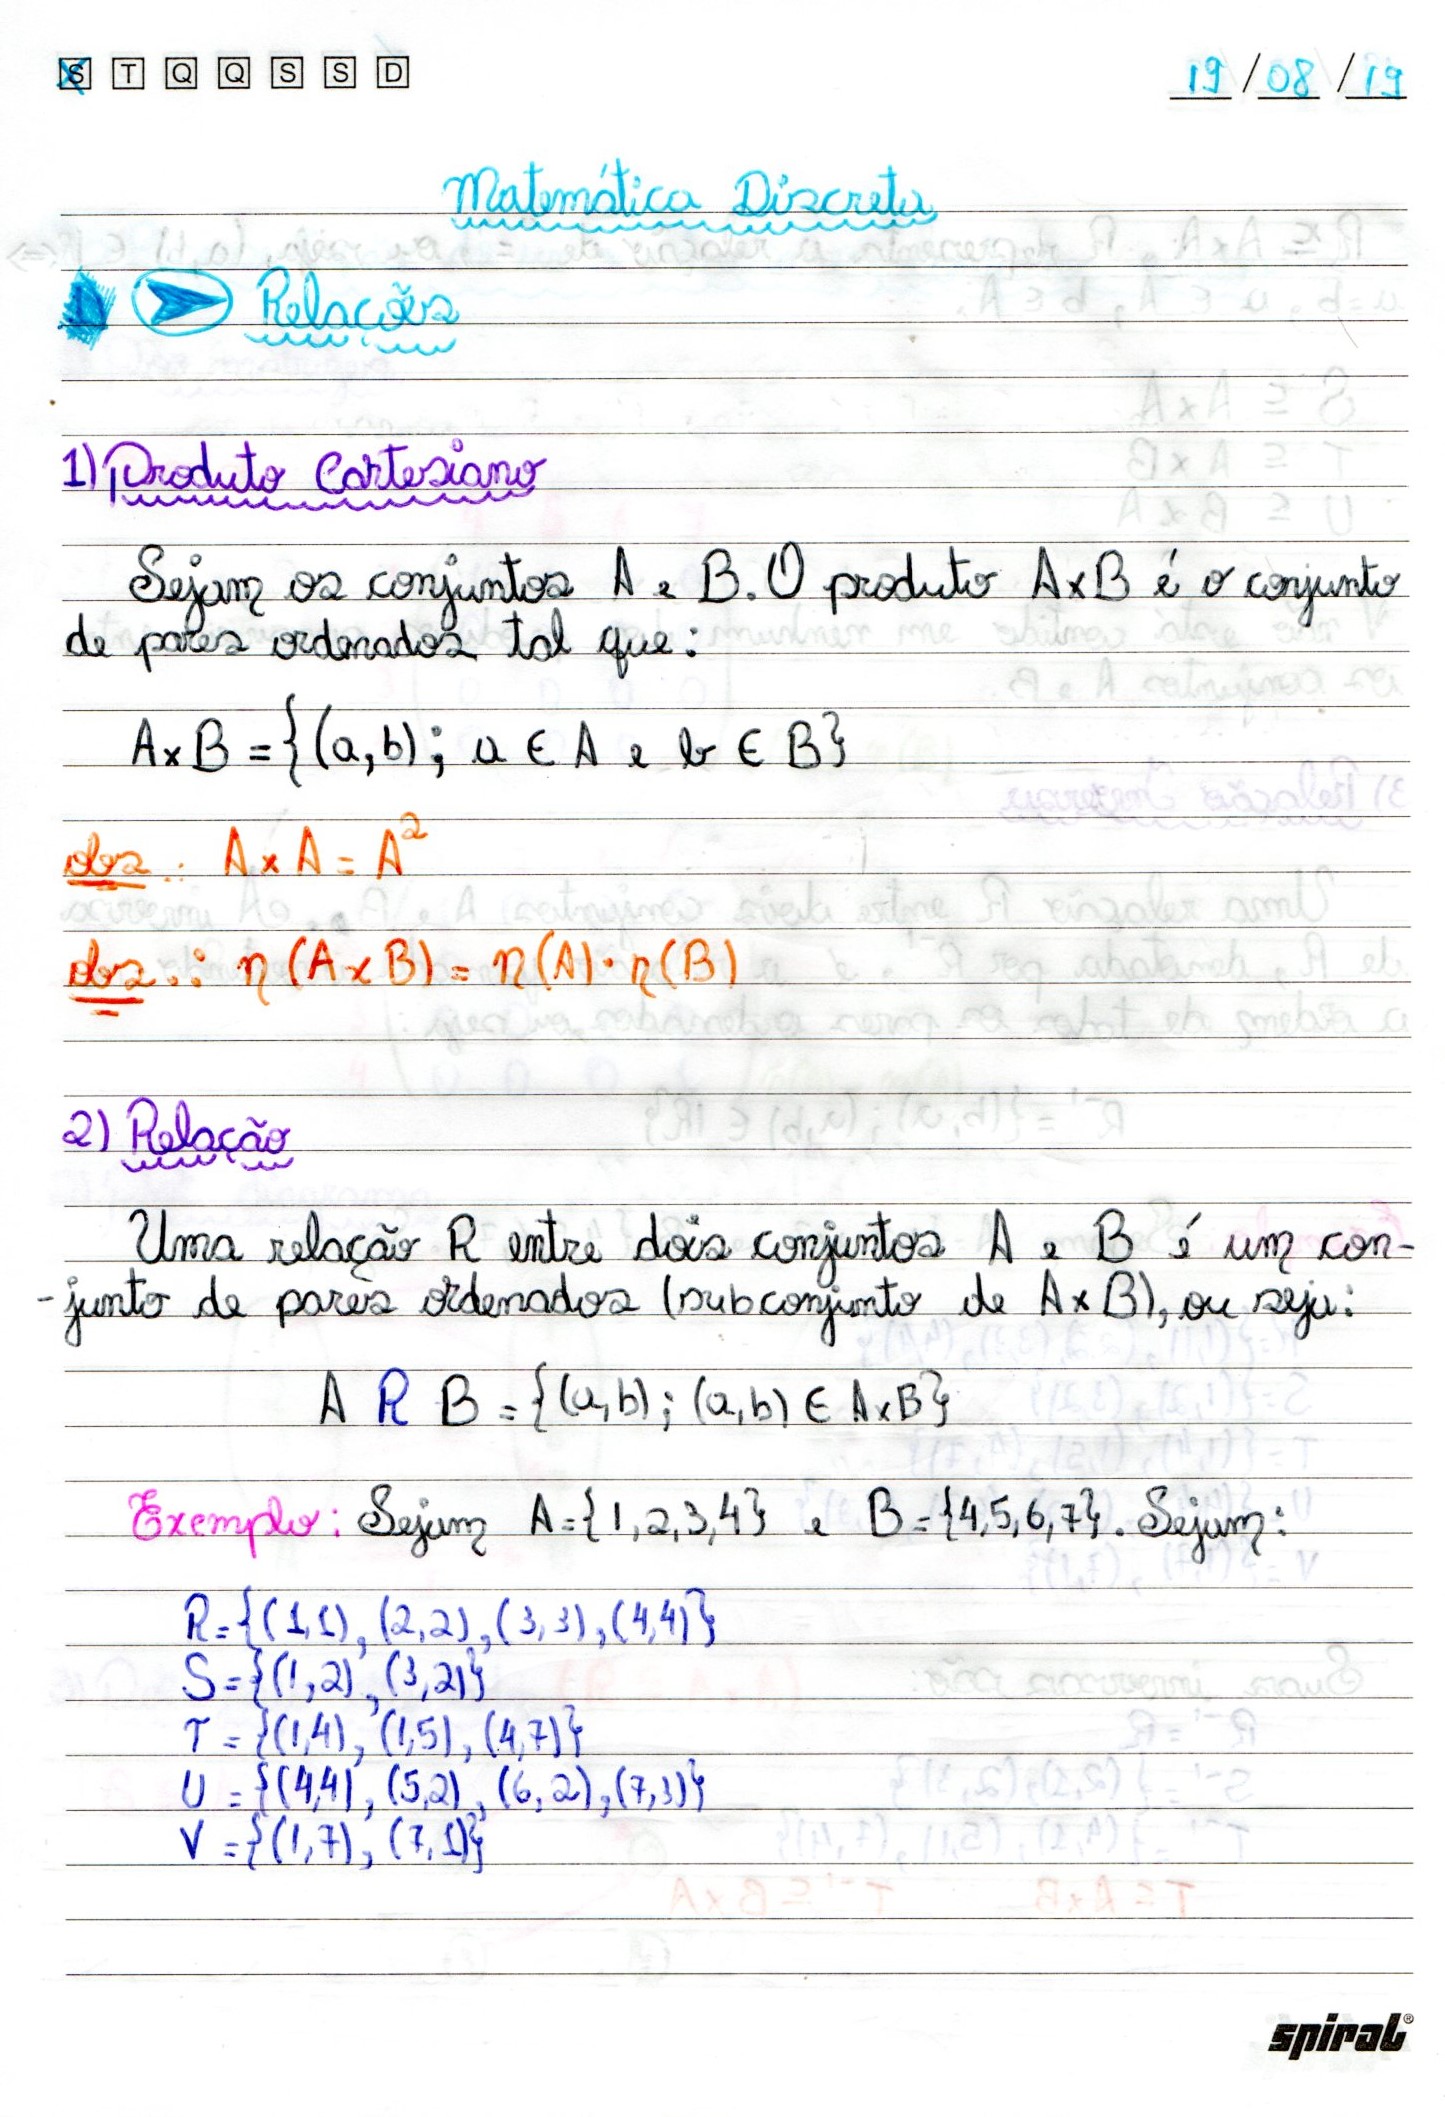 S T Q Q S S D
19/08/19
Matemática Discreta
Relações
1) Produto Cartesiano
Sejam os conjuntos A e B. O produto A×B é o conjunto
de pares ordenados tal que:
A×B = {(a,b); a ∈ A e b ∈ B}
obs.: A×A = A²
obs.: n(A×B) = n(A)·n(B)
2) Relação
Uma relação R entre dois conjuntos A e B é um con-
-junto de pares ordenados (subconjunto de A×B), ou seja:
A R B = {(a,b); (a,b) ∈ A×B}
Exemplo: Sejam A={1,2,3,4} e B={4,5,6,7}. Sejam:
R={(1,1), (2,2), (3,3), (4,4)}
S={(1,2), (3,2)}
T={(1,4), (1,5), (4,7)}
U={(4,4), (5,2), (6,2), (7,3)}
V={(1,7), (7,1)}
spiral®